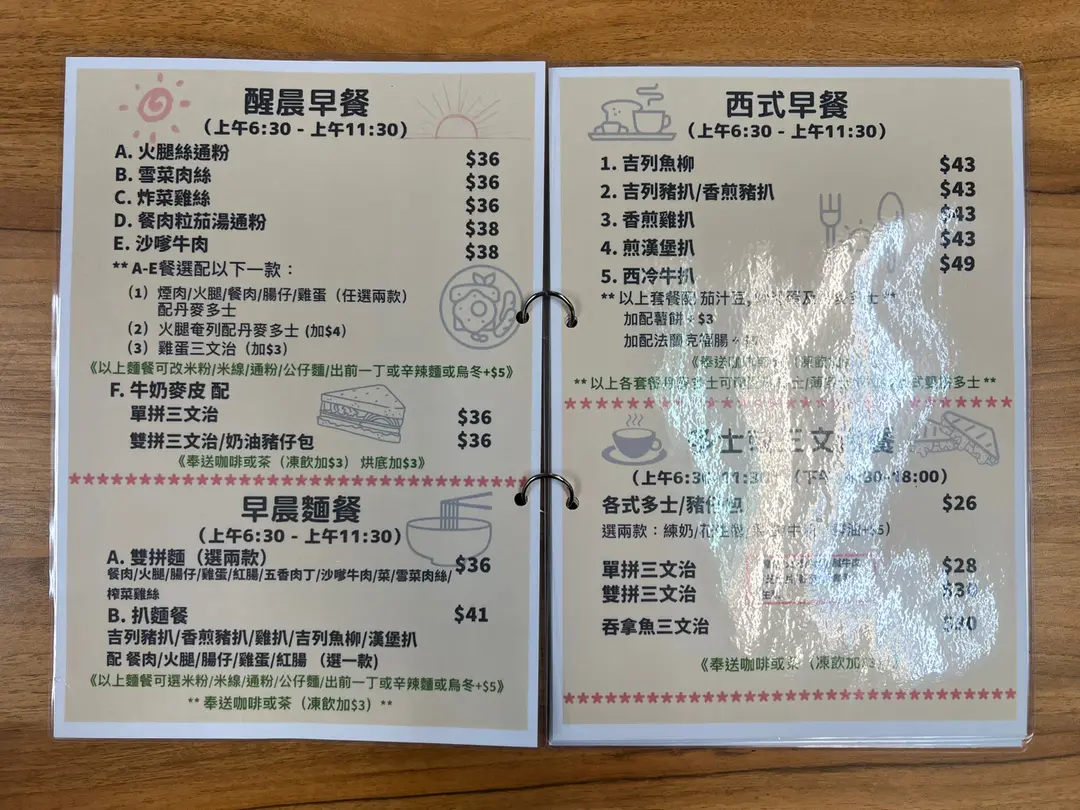 醒晨早餐
(上午6:30 - 上午11:30)
A. 火腿絲通粉 $36
B. 雪菜肉絲 $36
C. 炸菜雞絲 $36
D. 餐肉粒茄湯通粉 $38
E. 沙嗲牛肉 $38
** A-E餐選配以下一款：
(1) 煙肉/火腿/餐肉/腸仔/雞蛋（任選兩款）
配丹麥多士
(2) 火腿奄列配丹麥多士 (加$4)
(3) 雞蛋三文治（加$3）
《以上麵餐可改米粉/米線/通粉/公仔麵/出前一丁或辛辣麵或烏冬+$5》
F. 牛奶麥皮 配
單拼三文治 $36
雙拼三文治/奶油豬仔包 $36
《奉送咖啡或茶（凍飲加$3） 烘底加$3》
早晨麵餐
(上午6:30 - 上午11:30)
A. 雙拼麵（選兩款） $36
餐肉/火腿/腸仔/雞蛋/紅腸/五香肉丁/沙嗲牛肉/菜/雪菜肉絲/
榨菜雞絲
B. 扒麵餐 $41
吉列豬扒/香煎豬扒/雞扒/吉列魚柳/漢堡扒
配 餐肉/火腿/腸仔/雞蛋/紅腸 （選一款)
《以上麵餐可選米粉/米線/通粉/公仔麵/出前一丁或辛辣麵或烏冬+$5》
** 奉送咖啡或茶（凍飲加$3）**
西式早餐
(上午6:30 - 上午11:30)
1. 吉列魚柳 $43
2. 吉列豬扒/香煎豬扒 $43
3. 香煎雞扒 $43
4. 煎漢堡扒 $43
5. 西冷牛扒 $49
** 以上套餐配 茄汁豆,
加配薯餅+$3
加配法蘭克福腸
** 以上各套餐
多士 **
三文
(上午6:30 11:30) -18:00)
各式多士/豬仔包 $26
選兩款：練奶/花生醬
單拼三文治 $28
雙拼三文治 $30
吞拿魚三文治 $30
《奉送咖啡或茶（凍飲加